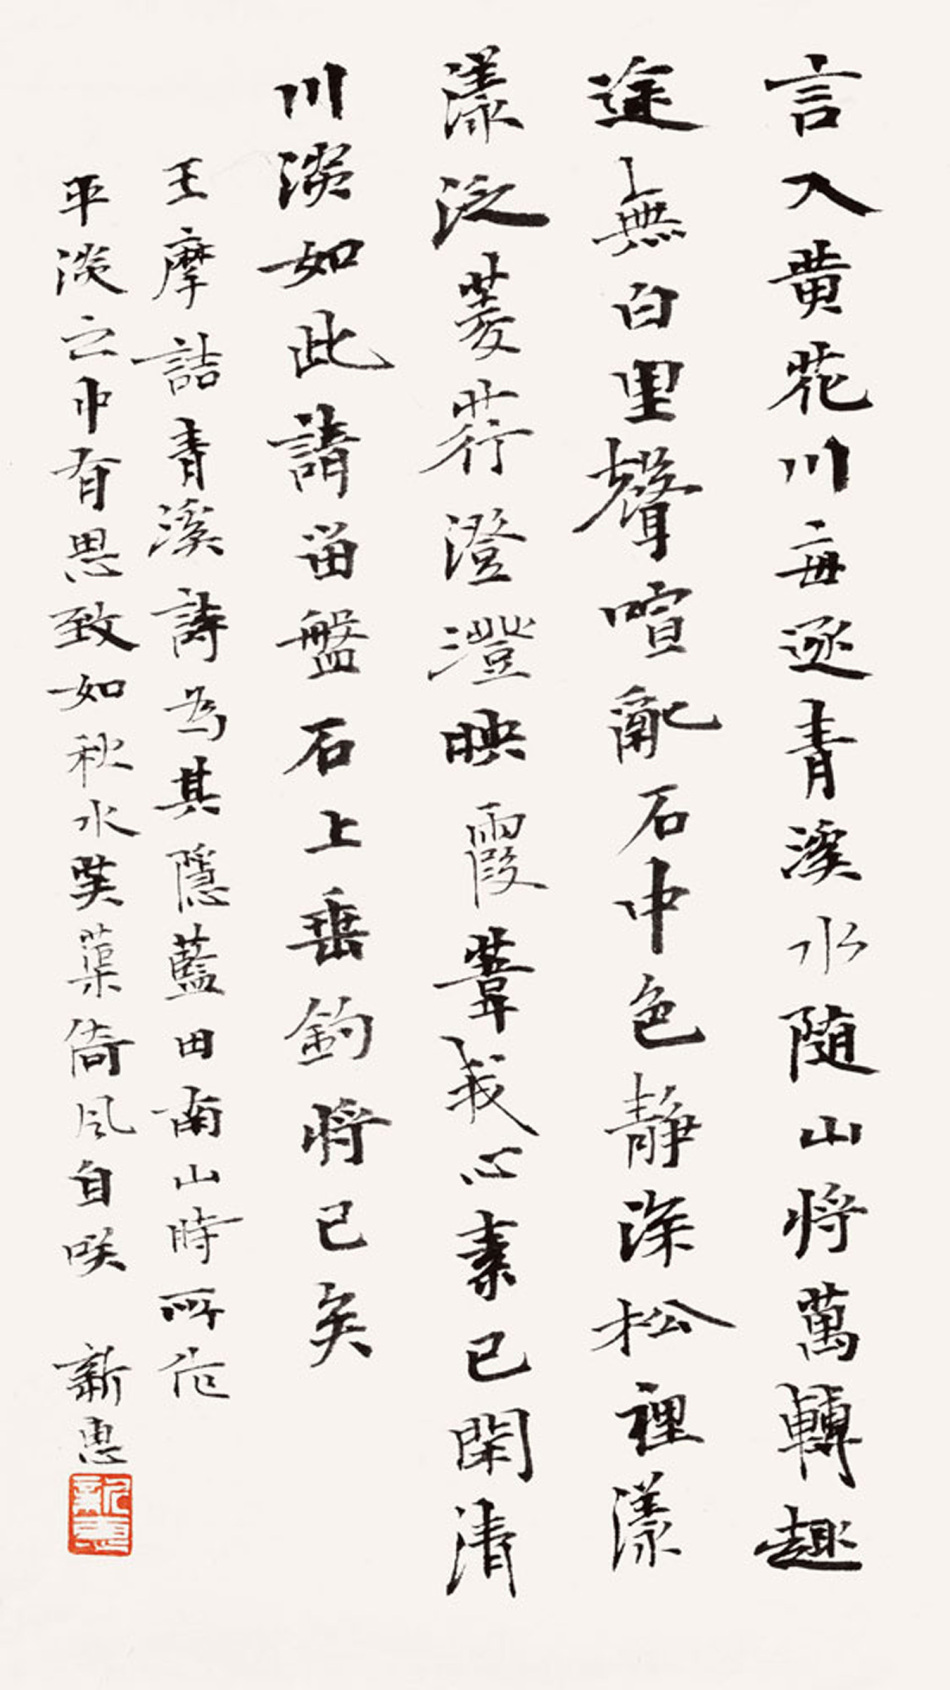 言入黄花川每逐青溪水随山将萬轉趣
途無白里聲喧亂石中色靜深松裡漾
漾泛菱荇澄澄映霞葦我心素已閑清
川淡如此請留盤石上垂鉤将已矣
王摩詰青溪詩為其隱藍田南山時所作
平淡之中有思致如秋水芙蕖倚風自咲 新惠
新惠